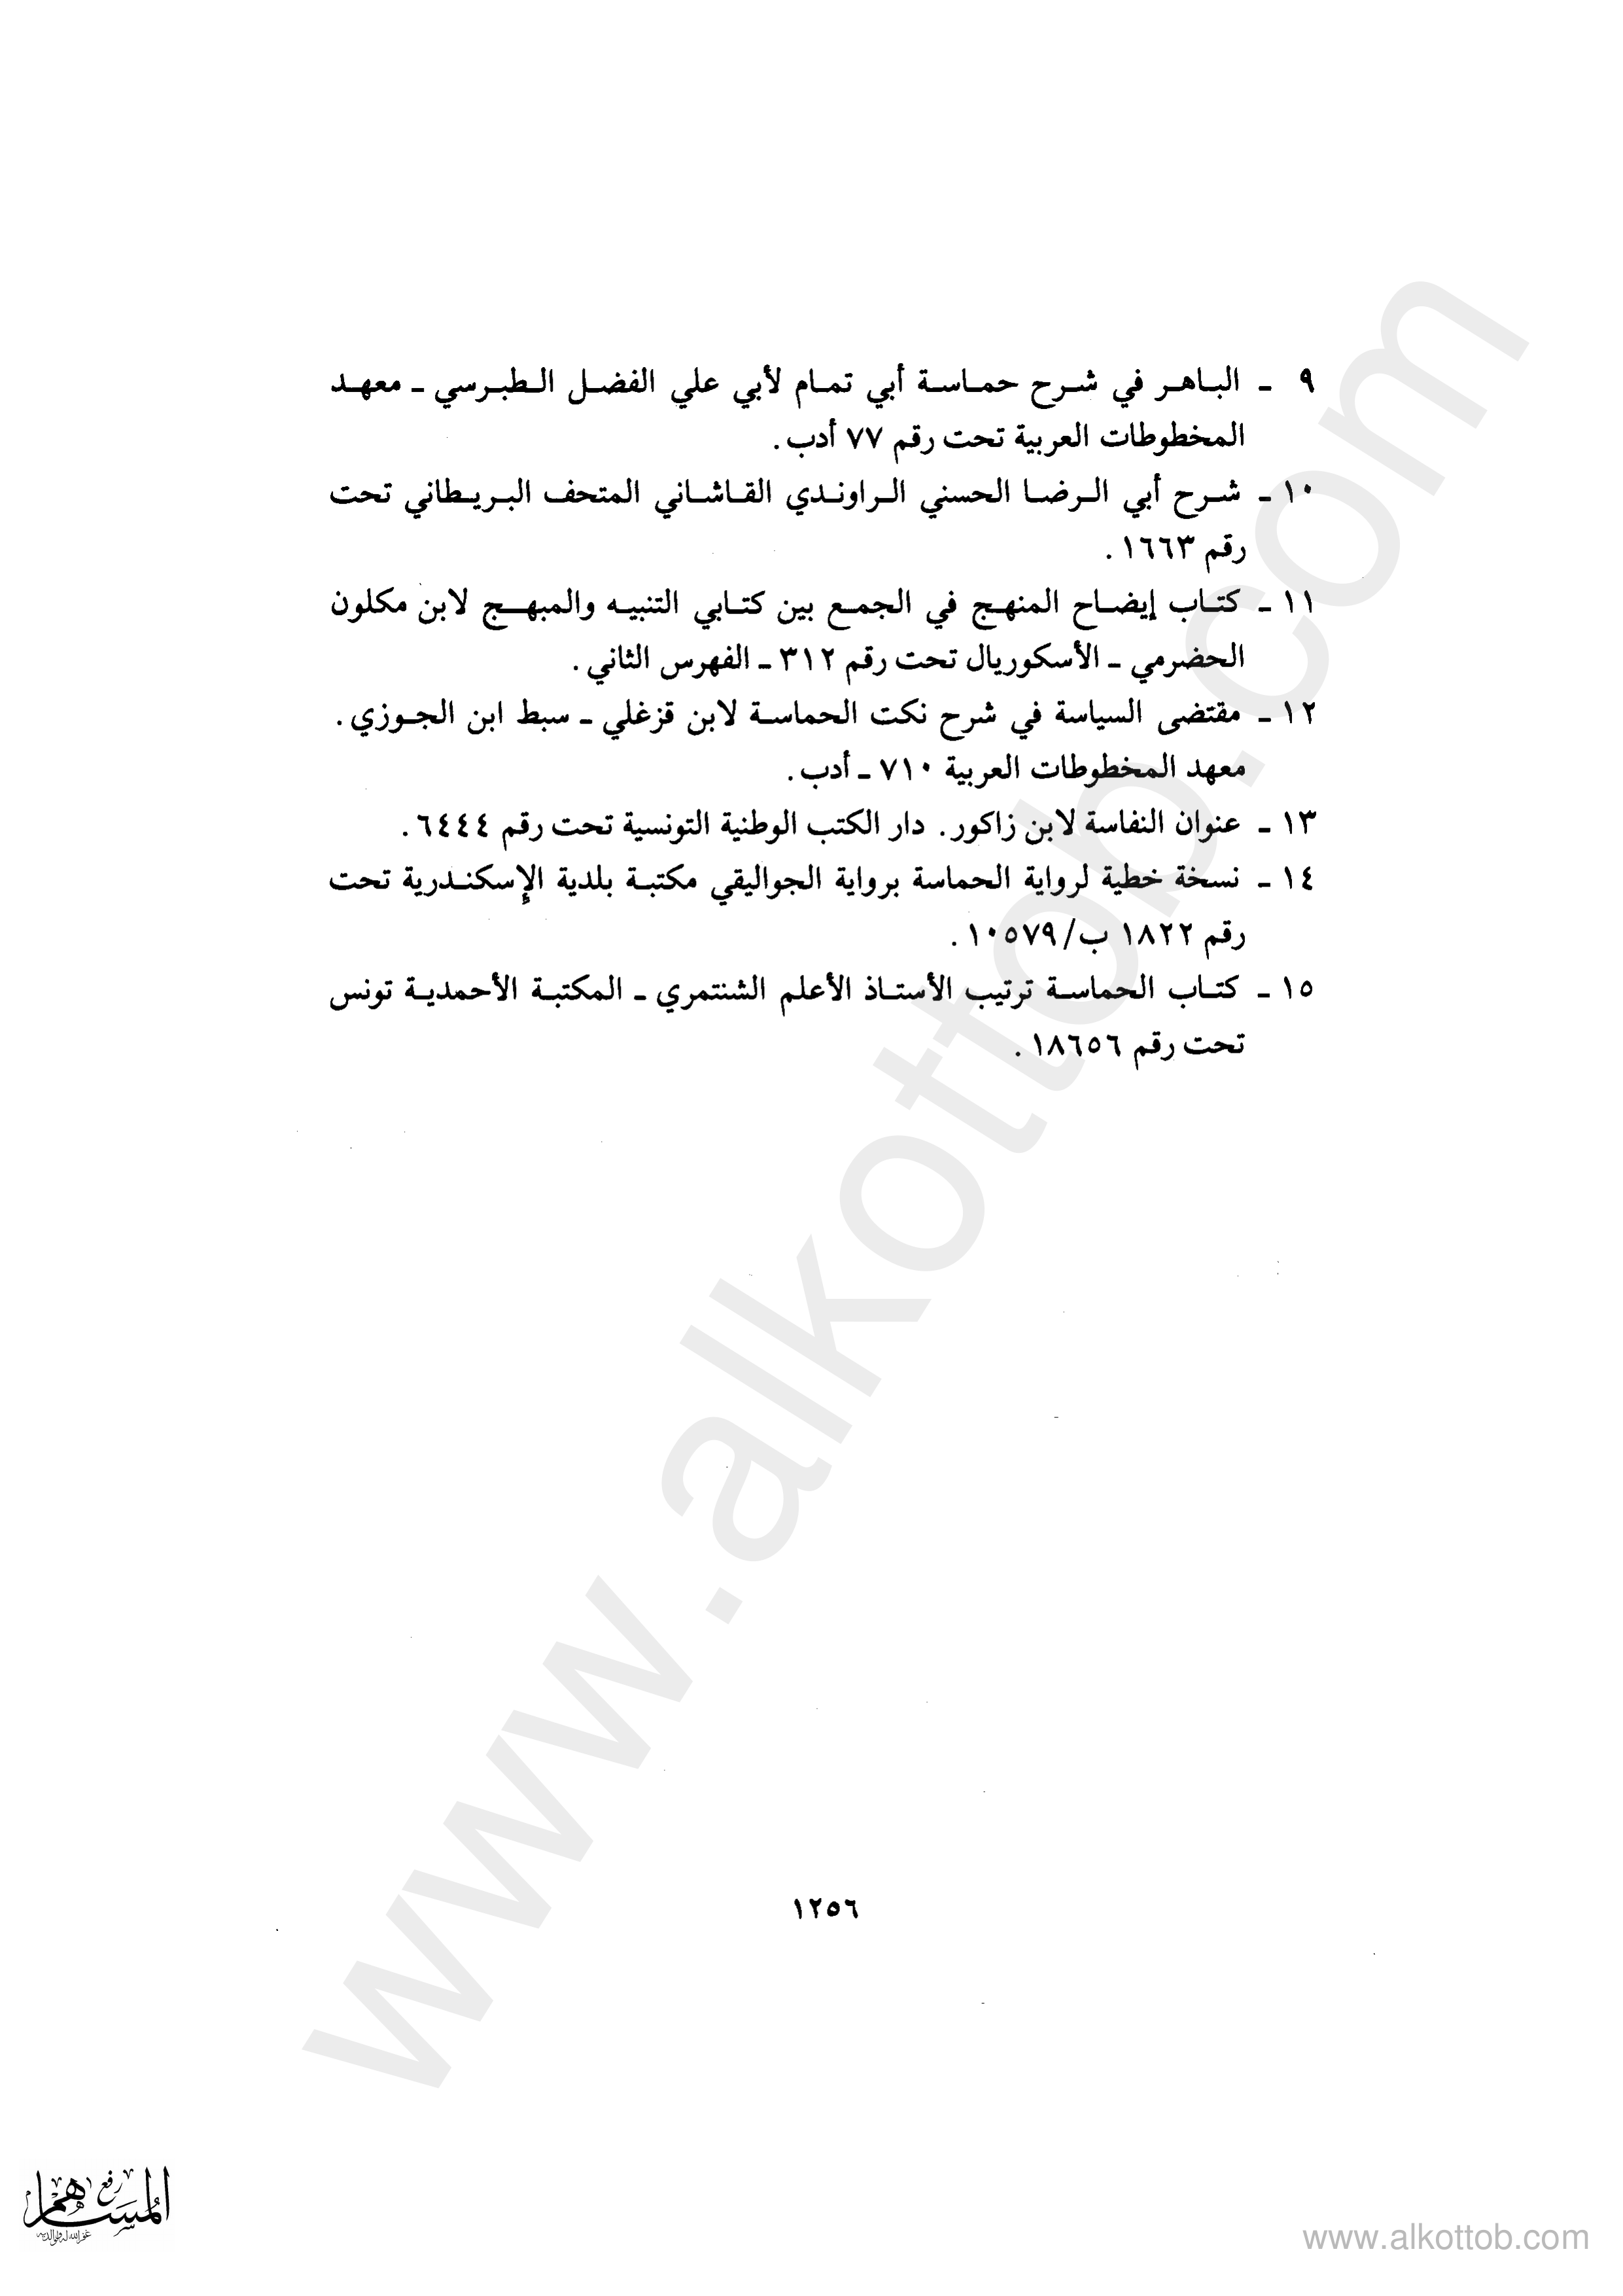 ٩ ـ الباهر في شرح حماسة أبي تمام لأبي علي الفضل الطبرسي ـ معهد
المخطوطات العربية تحت رقم ٧٧ أدب.
١٠ ـ شرح أبي الرضا الحسني الراوندي القاشاني المتحف البريطاني تحت
رقم ١٦٦٣.
١١ ـ كتاب إيضاح المنهج في الجمع بين كتابي التنبيه والمبهج لابن مكلون
الحضرمي ـ الأسكوريال تحت رقم ٣١٢ ـ الفهرس الثاني.
١٢ ـ مقتضى السياسة في شرح نكت الحماسة لابن قزغلي ـ سبط ابن الجوزي.
معهد المخطوطات العربية ٧١٠ ـ أدب.
١٣ ـ عنوان النفاسة لابن زاكور. دار الكتب الوطنية التونسية تحت رقم ٦٤٤٤.
١٤ ـ نسخة خطية لرواية الحماسة برواية الجواليقي مكتبة بلدية الإسكندرية تحت
رقم ١٨٢٢ ب/١٠٥٧٩.
١٥ ـ كتاب الحماسة ترتيب الأستاذ الأعلم الشنتمري ـ المكتبة الأحمدية تونس
تحت رقم ١٨٦٥٦.
www.alkottob.com
١٢٥٦
رفع
المساهم
غفر الله له ولوالديه
www.alkottob.com